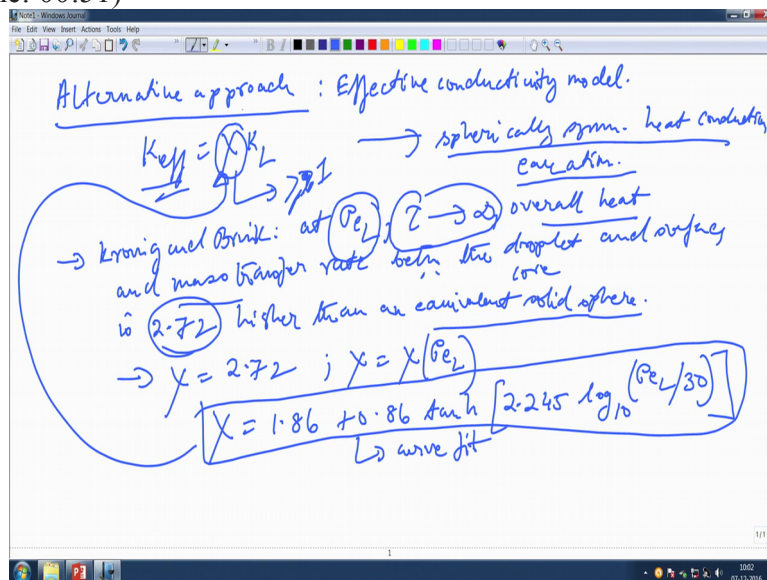 Note1 - Windows Journal
File Edit View Insert Actions Tools Help
Alternative approach : Effective conductivity model.
Keff = χ KL → spherically symm. heat conduction
equation.
→ ≥ 1
→ Kronig and Brink: at PeL, τ → ∞, overall heat
and mass transfer rate betn the droplet and surface
core
is 2.72 higher than an equivalent solid sphere.
→ χ = 2.72 ; χ = χ(PeL)
χ = 1.86 + 0.86 tanh [2.245 log10 (PeL/30)]
↳ curve fit
1/1
1
10:02
07-12-2016